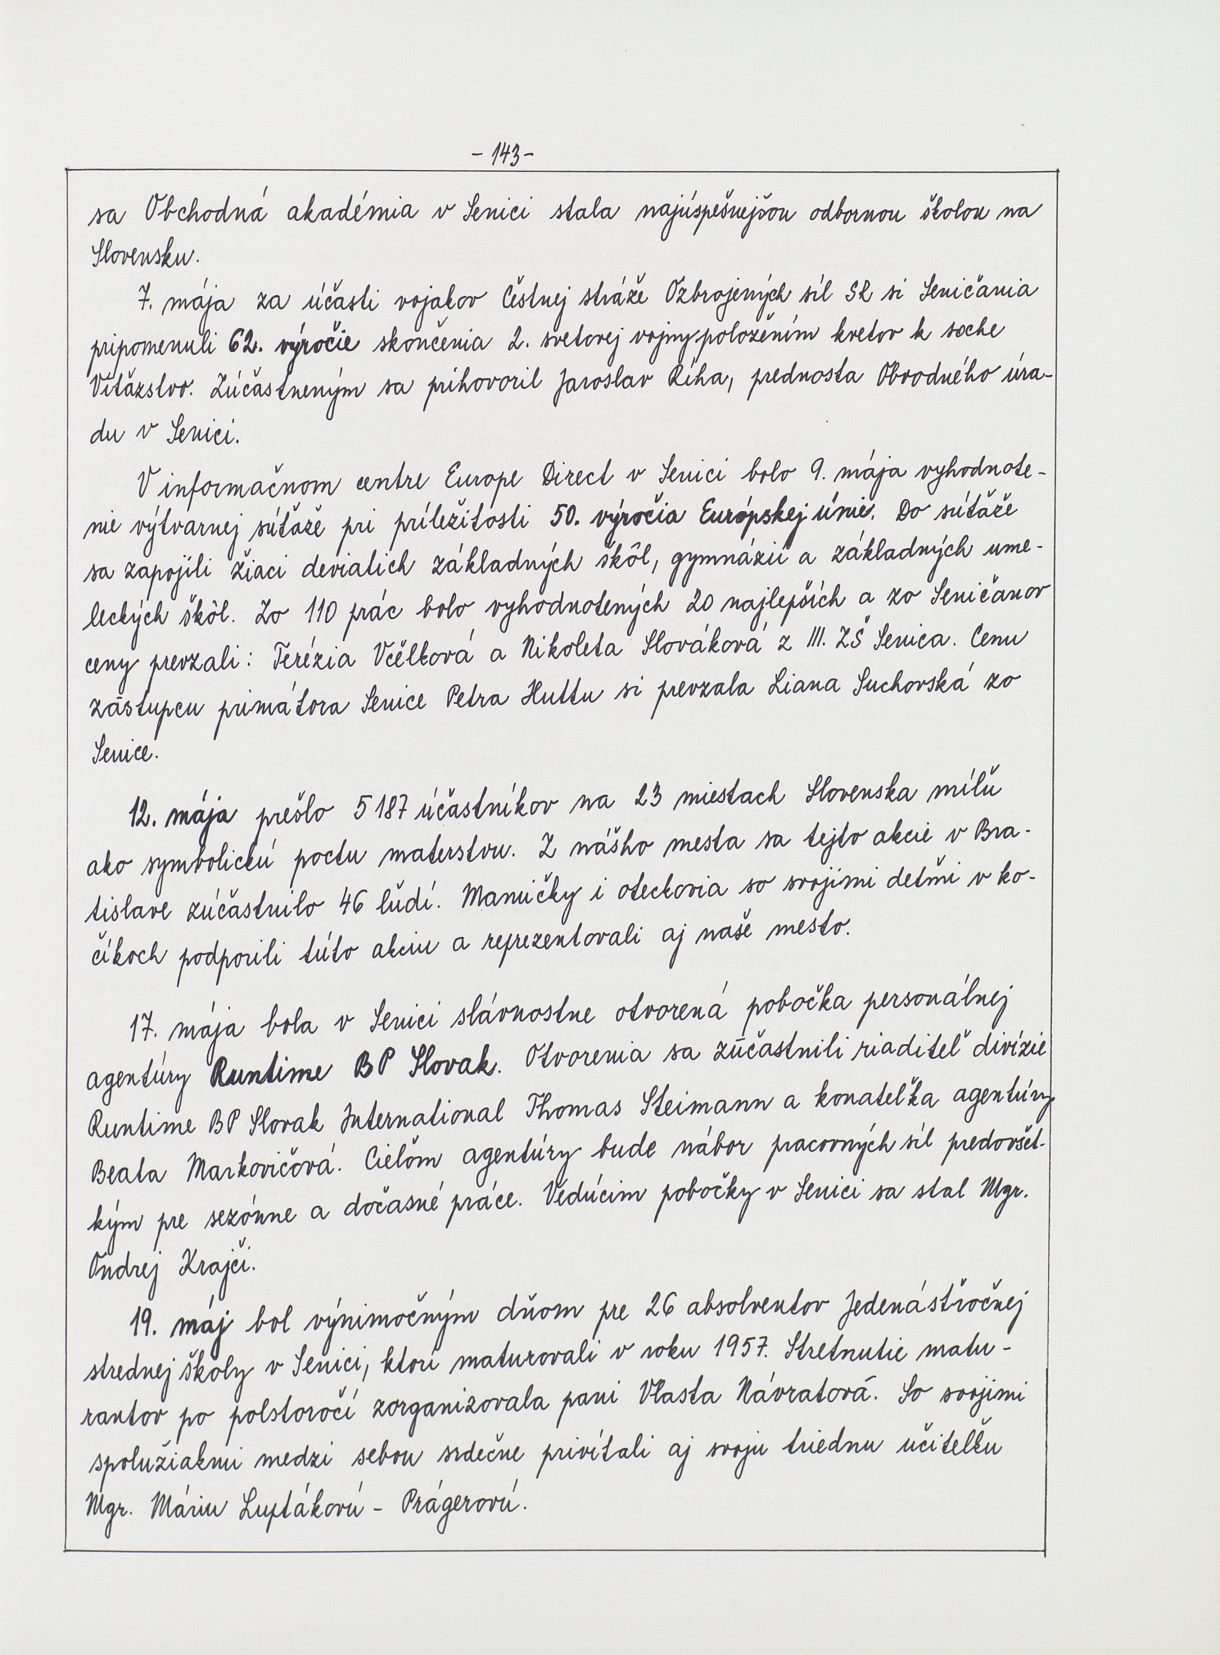 - 143 -
sa Obchodná akadémia v Senici stala najúspešnejšou odbornou školou na
Slovensku.
7. mája za účasti vojakov Čestnej stráže Ozbrojených síl SR si Seničania
pripomenuli 62. výročie skončenia 2. svetovej vojny položením kvetov k soche
Víťazstvo. Zúčastneným sa prihovoril Jaroslav Říha, prednosta Obvodného úra-
du v Senici.
V informačnom centre Europe Direct v Senici bolo 9. mája vyhodnote-
nie výtvarnej súťaže pri príležitosti 50. výročia Európskej únie. Do súťaže
sa zapojili žiaci deviatich základných škôl, gymnázií a základných ume-
leckých škôl. Zo 110 prác bolo vyhodnotených 20 najlepších a zo Seničanov
ceny prevzali: Terézia Včelková a Nikoleta Slováková z III. ZŠ Senica. Cenu
zástupcu primátora Senice Petra Huttu si prevzala Liana Suchovská zo
Senice.
12. mája prešlo 5 187 účastníkov na 23 miestach Slovenska míľu
ako symbolickú poctu materstvu. Z nášho mesta sa tejto akcie v Bra-
tislave zúčastnilo 46 ľudí. Mamičky i oteckovia so svojimi deťmi v ko-
číkoch podporili túto akciu a reprezentovali aj naše mesto.
17. mája bola v Senici slávnostne otvorená pobočka personálnej
agentúry Runtime BP Slovak. Otvorenia sa zúčastnili riaditeľ divízie
Runtime BP Slovak International Thomas Steimann a konateľka agentúry
Beata Markovičová. Cieľom agentúry bude nábor pracovných síl predovšet-
kým pre sezónne a dočasné práce. Vedúcim pobočky v Senici sa stal Mgr.
Ondrej Krajči.
19. máj bol výnimočným dňom pre 26 absolventov Jedenásťročnej
strednej školy v Senici, ktorí maturovali v roku 1957. Stretnutie matu-
rantov po polstoročí zorganizovala pani Vlasta Návratová. So svojimi
spolužiakmi medzi sebou srdečne privítali aj svoju triednu učiteľku
Mgr. Máriu Luptákovú - Prágerovú.